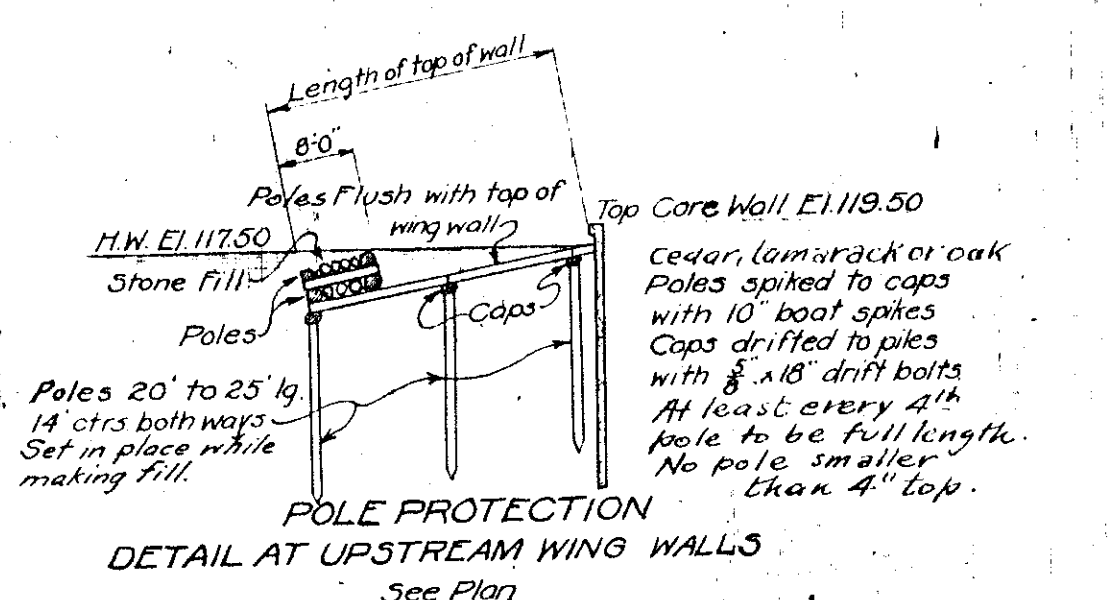 Length of top of wall
8'-0"
Poles Flush with top of
wing wall
Top Core Wall El.119.50
H.W. El. 117.50
Stone Fill
Poles
Caps
Cedar, tamarack or oak
Poles spiked to caps
with 10" boat spikes
Caps drifted to piles
with 5/8" x 18" drift bolts.
At least every 4th
pole to be full length.
No pole smaller
than 4" top.
Poles 20' to 25' lg.
14' ctrs. both ways
Set in place while
making fill.
POLE PROTECTION
DETAIL AT UPSTREAM WING WALLS
See Plan